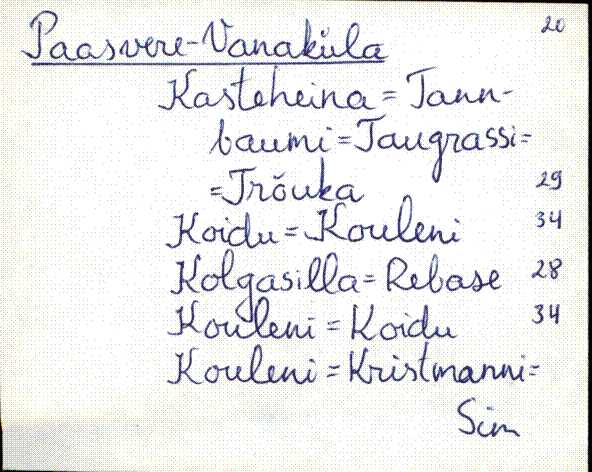 20
Paasvere-Vanaküla
Kasteheina = Tann-
baumi = Taugrassi =
= Trõuka 29
Koidu = Kouleni 34
Kolgasilla = Rebase 28
Kouleni = Koidu 34
Kouleni = Kristmanni =
Sim